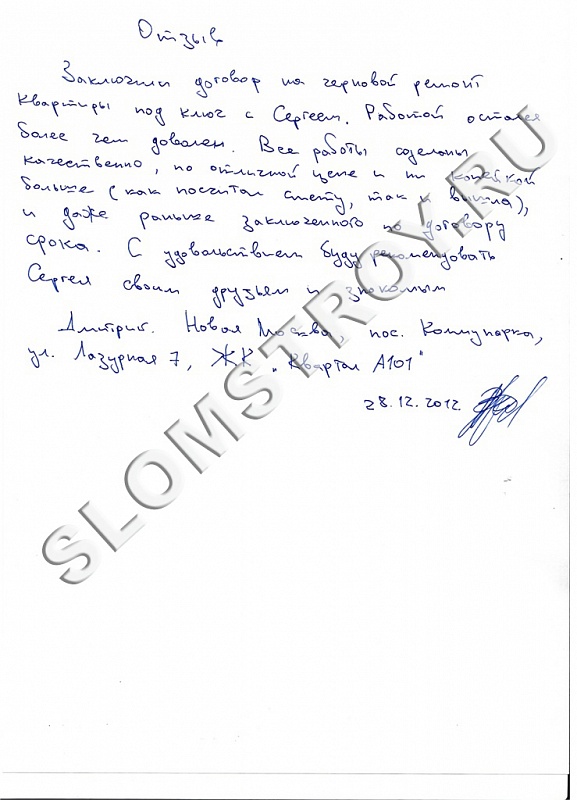 Отзыв
Заключили договор на черновой ремонт
квартиры под ключ с Сергеем. Работой остался
более чем доволен. Все работы сделаны
качественно, по отличной цене и ни копейкой
больше (как посчитал смету, так и вышла),
и даже раньше заключенного по договору
срока. С удовольствием буду рекомендовать
Сергея своим друзьям и знакомым
Дмитрий. Новая Москва, пос. Коммунарка,
ул. Лазурная 7, ЖК "Квартал А101"
28.12.2012.
SLOMSTROY.RU